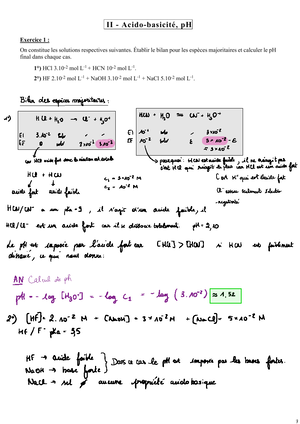 II - Acido-basicité, pH
Exercice 1 :
On constitue les solutions respectives suivantes. Établir le bilan pour les espèces majoritaires et calculer le pH
final dans chaque cas.
1°) HCl 3.10⁻² mol L⁻¹ + HCN 10⁻² mol L⁻¹.
2°) HF 2.10⁻² mol L⁻¹ + NaOH 3.10⁻² mol L⁻¹ + NaCl 5.10⁻² mol L⁻¹.
Bilan des espèces majoritaires :
1°)
HCl + H₂O → Cl⁻ + H₃O⁺
EI 3.10⁻²
EF 0 3×10⁻² 3×10⁻²
HCN + H₂O = CN⁻ + H₃O⁺
EI 10⁻² 3×10⁻²
EF 10⁻² 3×10⁻²
= 3×10⁻²
car HCl acide fort donc la réaction est totale
pourquoi : HCN est acide faible, il ne réagit pas
HCl + HCN
acide fort acide faible
C₁ = 3×10⁻² M
C₂ = 10⁻² M
HCN/CN⁻ a un pka = 9, il s'agit d'un acide faible, il
HCl/Cl⁻ est un acide fort car il se dissout totalement. pH = 2,10
Le pH est imposé par l'acide fort car [HCl] > [HCN] si HCN est faiblement
dissocié, ce qui nous donne :
AN Calcul de ph
pH = - log [H₃O⁺] = - log C₁ = - log (3.10⁻²) ≈ 1,52
2°) [HF] = 2.10⁻² M - [NaOH] = 3×10⁻² M - [NaCl] = 5×10⁻² M
HF / F⁻ pKa = 3,5
HF → acide faible
NaOH → base forte
Dans ce cas le pH est imposé par les bases fortes.
NaCl → sel aucune propriété acidobasique